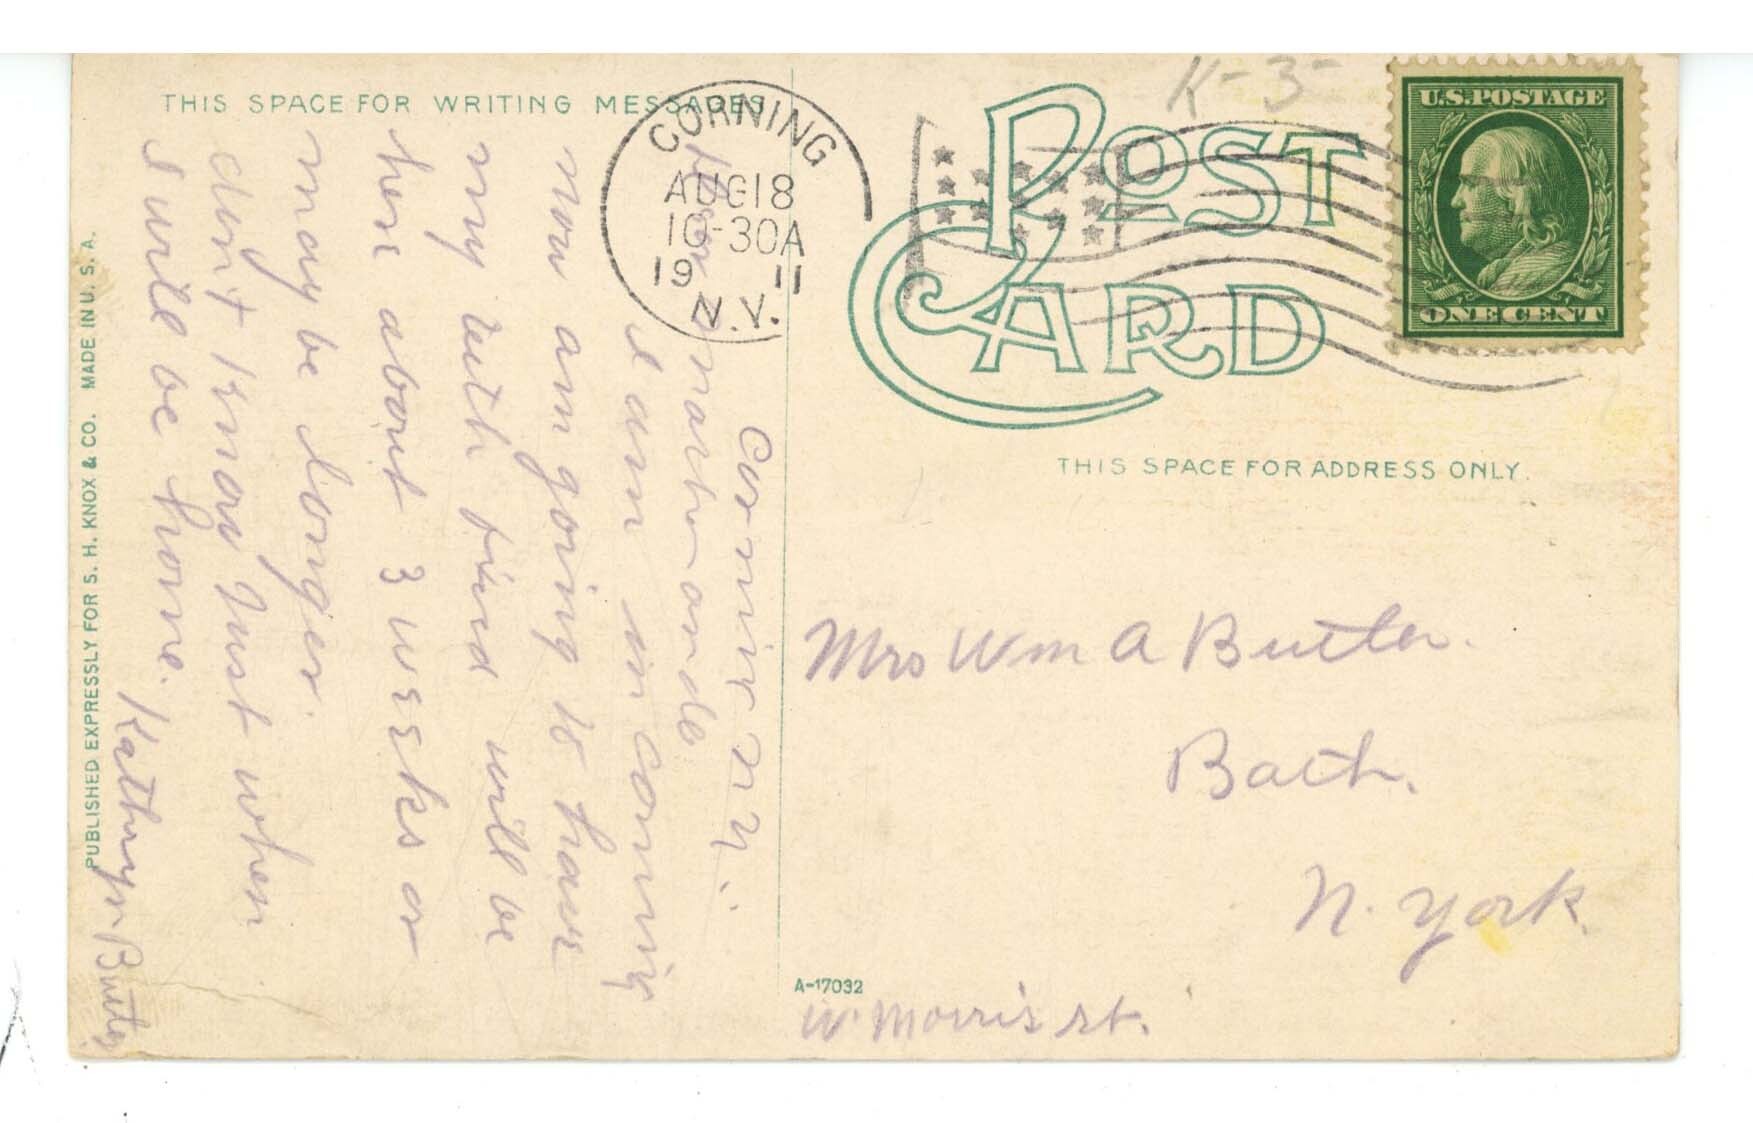 THIS SPACE FOR WRITING MESSAGES
CORNING
AUG 18
10-30A
19 11
N.Y.
K-3-
POST
CARD
U.S. POSTAGE
ONE CENT
THIS SPACE FOR ADDRESS ONLY.
Corning N Y.
Dear
I am in corning
now am going to have
my teeth fixed will be
here about 3 weeks or
may be longer.
dint know just when
I will be home.
Kathryn Butler
Mrs Wm A Butler.
Bath.
N. York.
W. Morris st.
A-17032
PUBLISHED EXPRESSLY FOR S. H. KNOX & CO. MADE IN U. S. A.